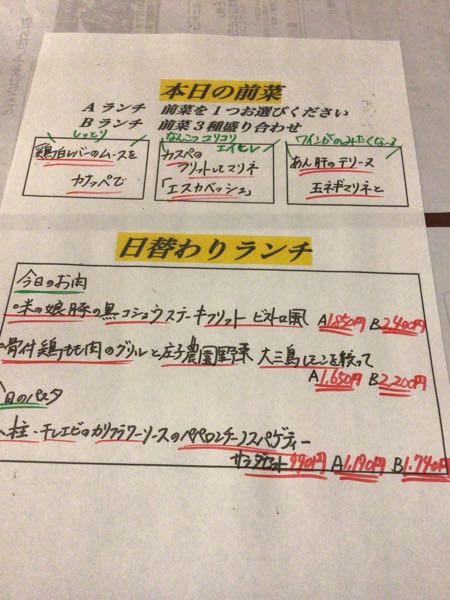 本日の前菜
A ランチ 前菜を1つお選びください
B ランチ 前菜3種盛り合わせ
しっとり
鶏白レバーのムースを
カナッペで
なんこつコリコリ
エイヒレ
カスベの
フリットしてマリネ
「エスカベッシュ」
ワインがのみたくなーる
あん肝のテリーヌ
玉ネギマリネと
日替わりランチ
今日のお肉
○米の娘豚の黒コショウステーキフリット ビストロ風 A1,850円 B2,400円
○骨付鶏もも肉のグリルと庄子農園野菜 大三島レモンを絞って
A1,650円 B2,200円
日のパスタ
柱・干しエビのカリフラワーソースのペペロンチーノスパゲティー
サラダセット990円 A1,190円 B1,740円